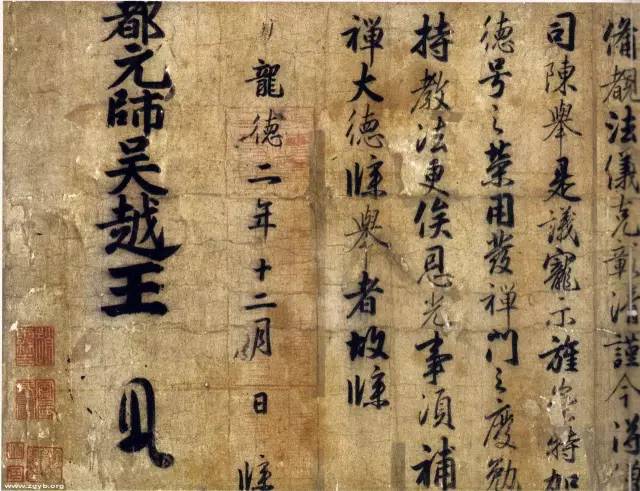 備覩法儀克彰清謹今得僧
司陳舉是議寵示旌賞特加
德号之榮用發禪門之慶勉
持教法更俟恩光事須補
禪大德牒舉者故牒
龍德二年十二月 日 牒
都元帥吳越王
www.zgyb.org